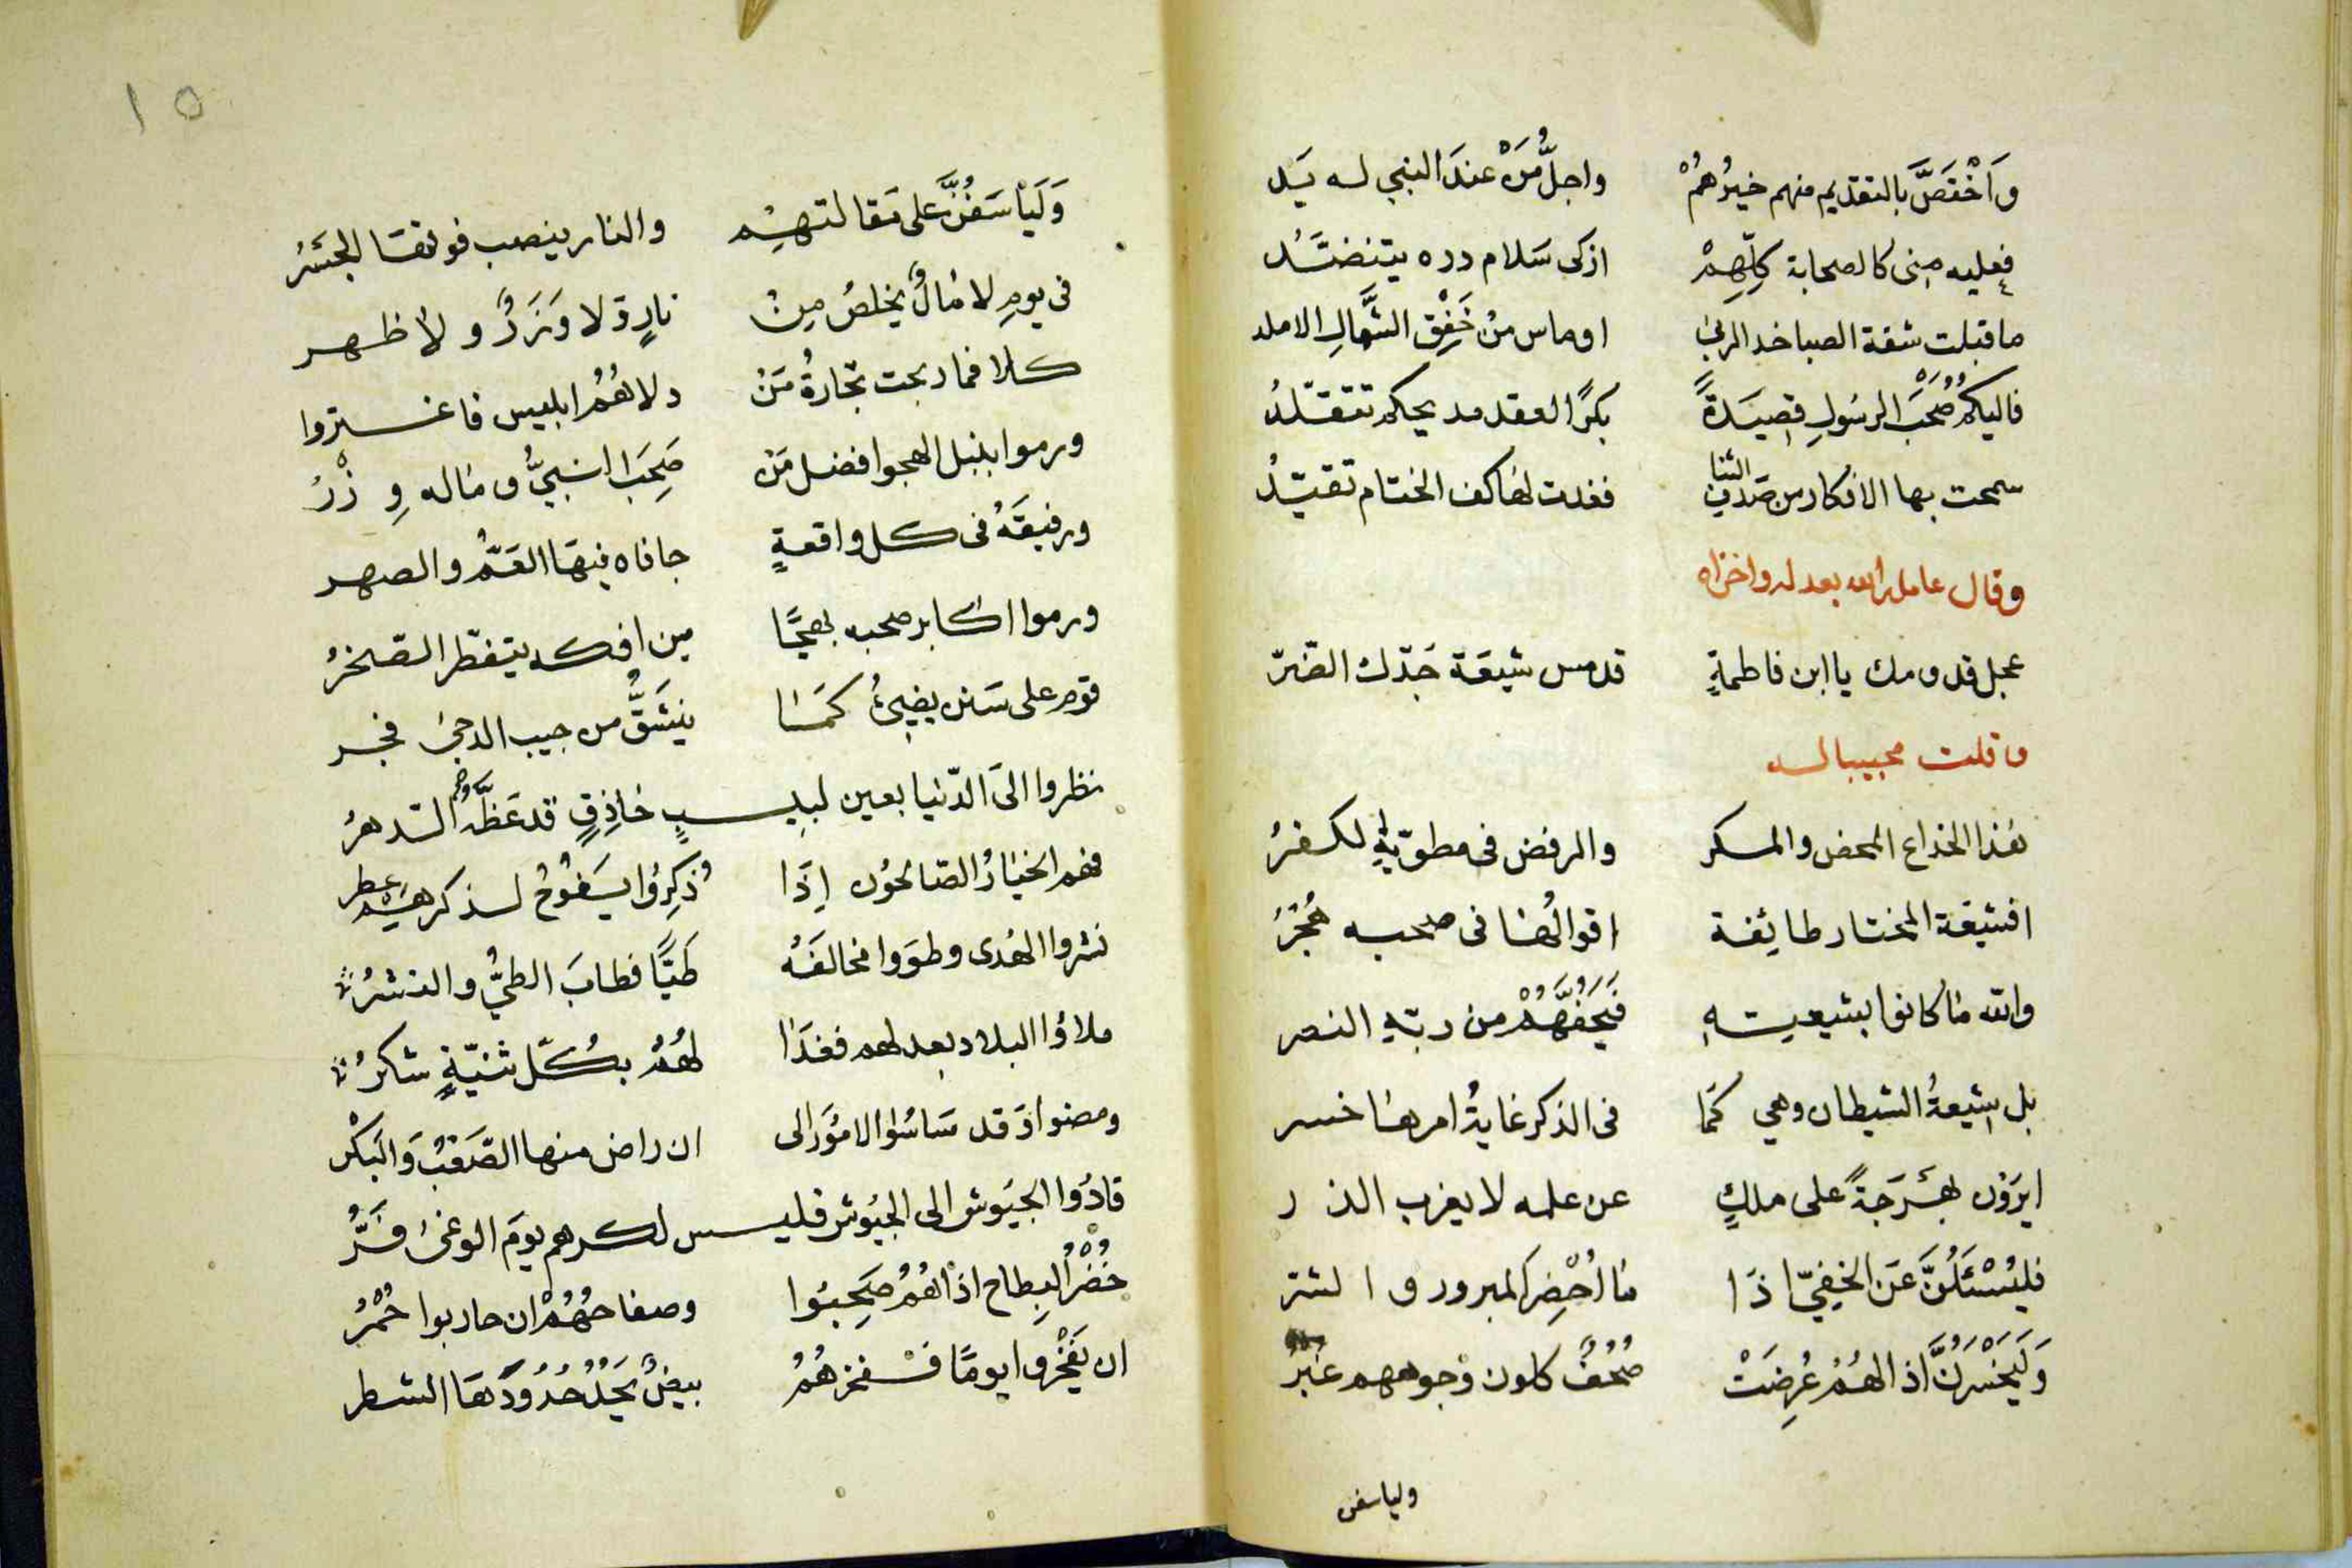 وَاخْتَصَّ بالتقديم منهم خيرُهُمْ واجلُّ مَنْ عندَ النبي له يَد
فعليه مِنى كالصحابة كلِّهِمْ ازكى سَلام دره يتنضَّدُ
ما قبلت شفة الصبا خد الربىٰ اوماس منْ خَفِقِ الشَّمالِ الاملد
فاليكمُ صُحْبَ الرسُولِ قصِيدَةً بكرًا لعقد مديحكم تتقلّدُ
سمحت بها الافكار من صَدفِ الثنا فغدت لها كف الختام تقيّدُ
وقال عامله الله بعدله واخزاه
عجل قدومك يا ابن فاطمةٍ قد مس شيعَة جَدّك الضّرّ
وقلت مجيبا له
هٰذا الخداع المحض والمكر والرفض فى مطويّه الكفرُ
افشيعَة المختار طائِفة اقوالُها فى صحبه هُجْرُ
والله مٰا كانوا بشيعيتهِ فَيَحُفَّهُمْ من ربّهِ النصر
بل شِيعةُ الشيطان وهي كمَا فى الذكر غايةُ امرهٰا خسر
ايرَوْن بهْرَجَةً على ملكٍ عن علمه لا يعزب الذر
فليُسْئَلُنَّ عَن الخفيّ اذَا مٰا اُحْضِر المبرور والشر
وَلَيَخْسَرُنَّ اذا لهُمُ عُرِضَتْ صُحُفٌ كلون وُجوههم غُبْرُ
ولياسفن
١٥
وَلَيَأسَفُنَّ على مَقالتهِم والنار ينصب فوقهَا الجَسْرُ
في يومِ لا مٰالٌ يخلصُ مِنْ نارٍ ولا وَزَرٌ ولا ظهر
كلا فما ربحت تجّارةُ مَنْ دلاهُمُ ابليس فاغتروا
ورموا بنبل الهجوا افضل مَنْ صَحِبَ النبيَّ ومٰاله وِزْرُ
ورفيقَهُ فى كل واقعةٍ جافاه فيهَا العَمُّ والصهر
ورموا اكابر صحبه بهجًا من افكه يتفطّر الصّخرُ
قوم على سَنن يضيئُ كمَا ينشَقُّ من جيب الدجىٰ فجر
نظروا الىَ الدّنيا بعين لبيبٍ حٰاذِقٍ قد عَظَّهُمُ الدهرُ
فهم الخيٰارُ الصّالحُون إذَا ذُكِرُوا يَفُوحُ لذكرهِمْ عطر
نشروا الهُدى وطوَوا مخالفَهُ طَيًّا فطابَ الطيُّ والنشرُ
ملاؤا البلاد بعدلهم فغدَا لهُمُ بكُلّ ثنيّةٍ شكرُ
ومضوا وَقد سَاسُوا الامُوَرالى ان راض منها الصَّعبُ وَالبَكْر
قادُوا الجيُوش الى الجيُوش فليس لكرهم يومَ الوغىٰ فَرُّ
خُضْرُ البِطاح اذا هُمُ صَحِبُوا وصفاحهُمُ ان حاربوا حُمْرُ
ان يَفْخُروا يومًا فَفخرهُمُ بيضٌ يَحُدُّ حُدُودَهَا الشطر